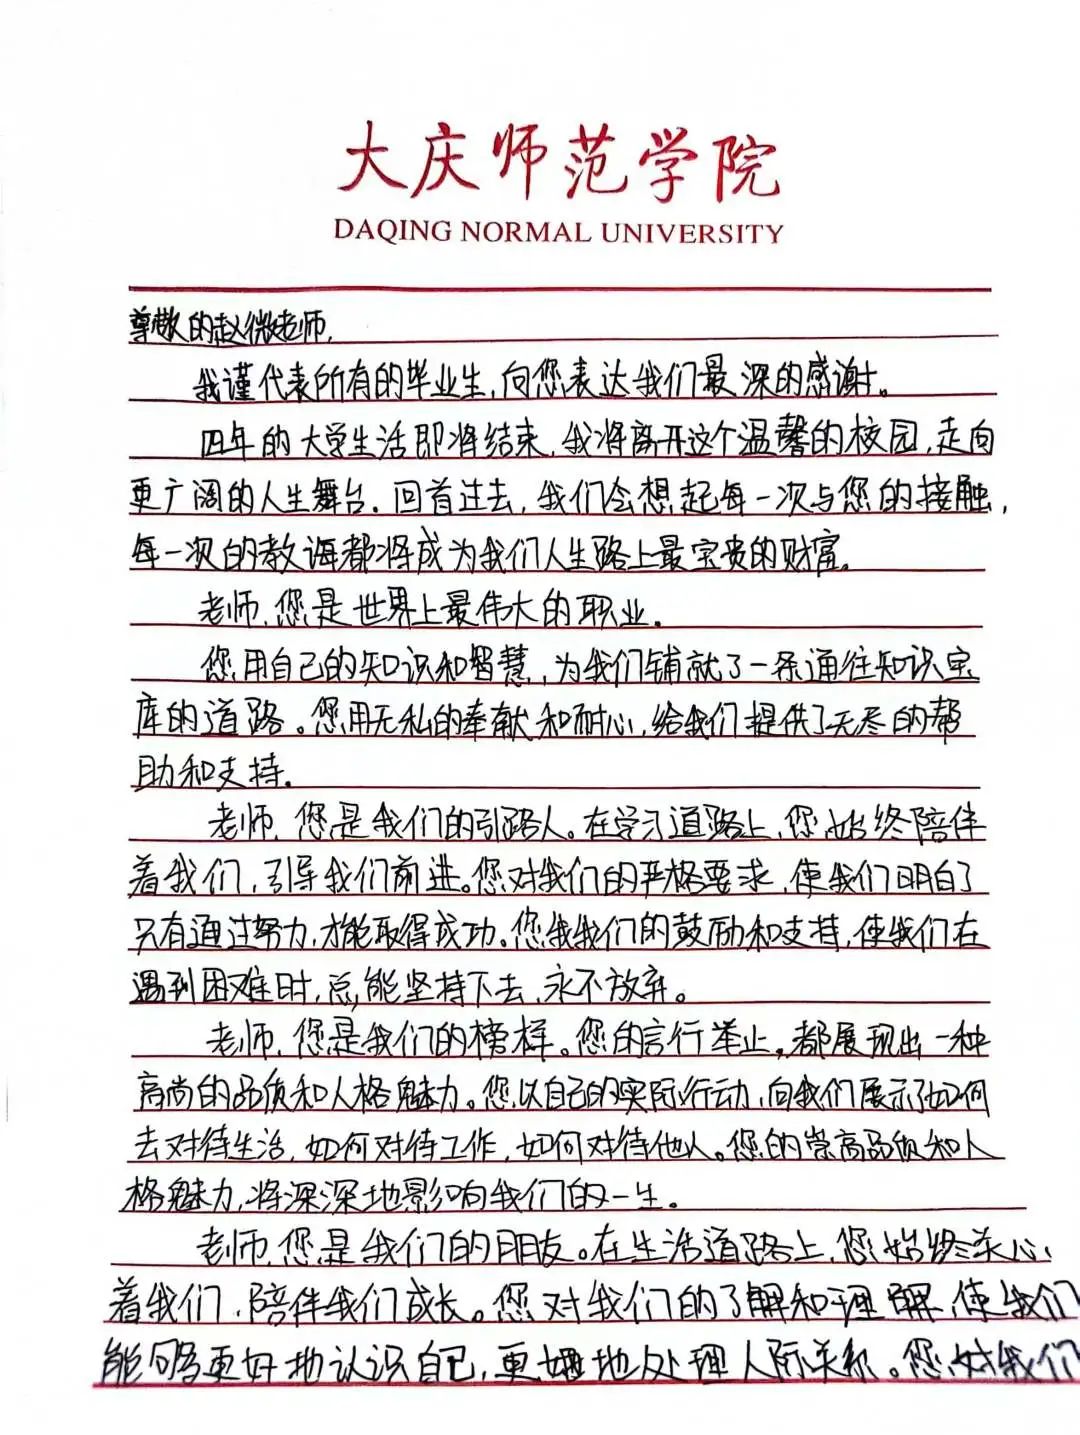 大庆师范学院
DAQING NORMAL UNIVERSITY
尊敬的赵微老师,
我谨代表所有的毕业生,向您表达我们最深的感谢。
四年的大学生活即将结束,我将离开这个温馨的校园,走向
更广阔的人生舞台。回首过去,我们会想起每一次与您的接触,
每一次的教诲都将成为我们人生路上最宝贵的财富。
老师,您是世界上最伟大的职业。
您用自己的知识和智慧,为我们铺就了一条通往知识宝
库的道路。您用无私的奉献和耐心,给我们提供了无尽的帮
助和支持。
老师,您是我们的引路人。在学习道路上,您始终陪伴
着我们,引导我们前进。您对我们的严格要求,使我们明白了
只有通过努力,才能取得成功。您我我们的鼓励和支持,使我们在
遇到困难时,总能坚持下去,永不放弃。
老师,您是我们的榜样。您的言行举止,都展现出一种
高尚的品质和人格魅力。您以自己的实际行动,向我们展示了如何
去对待生活,如何对待工作,如何对待他人。您的崇高品质和人
格魅力,将深深地影响我们的一生。
老师,您是我们的朋友。在生活道路上,您始终关心
着我们,陪伴我们成长。您对我们的了解和理解,使我们
能够更好地认识自己,更地处理人际关系。您对我们